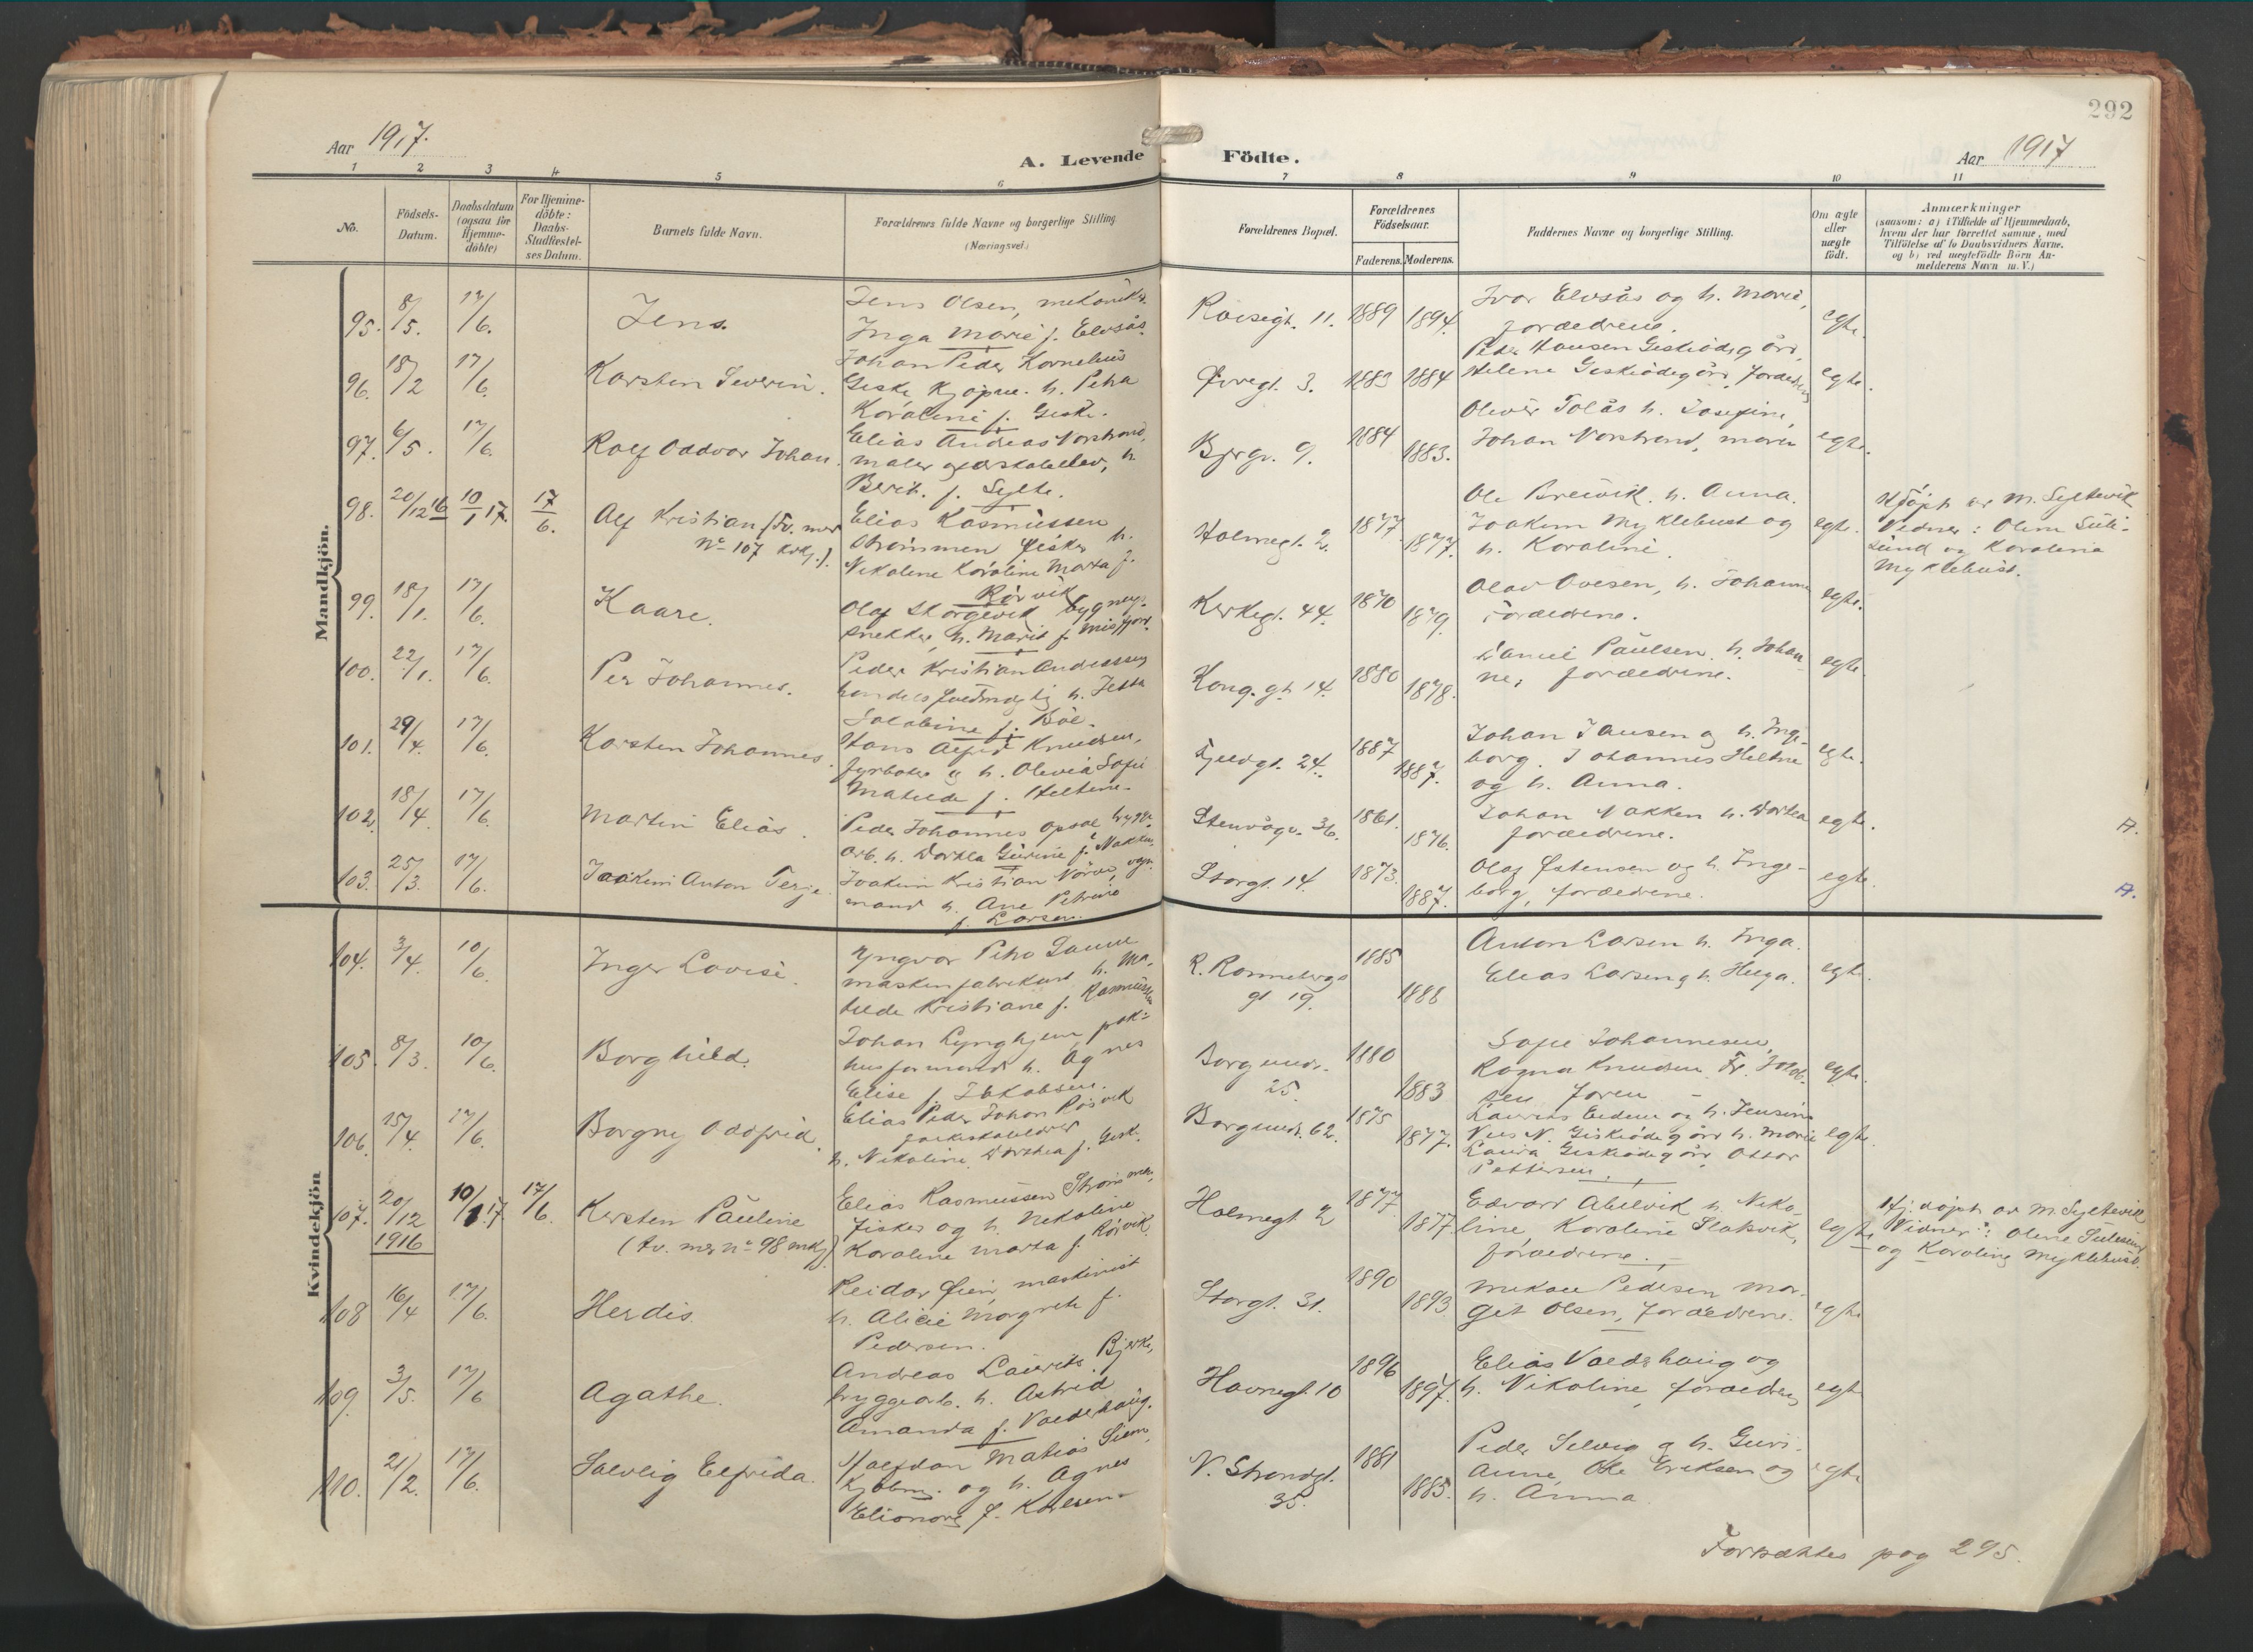 292
Aar 1917.
A. Levende Födte.
Aar 1917
1 2 3 4 5 6 7 8 9 10 11
No.
Födsels-
Datum.
Daabsdatum
(ogsaa för
Hjemme-
döbte)
For Hjemme-
döbte:
Daabs-
Stadfæstel-
ses Datum.
Barnets fulde Navn.
Forældrenes fulde Navne og borgerlige Stilling
(Næringsvei.)
Forældrenes Bopæl.
Forældrenes
Födselsaar.
Faderens. Moderens.
Faddernes Navne og borgerlige Stilling.
Om ægte
eller
uægte
födt.
Anmærkninger
(saasom: a) i Tilfælde af Hjemmedaab,
hvem der har forrettet samme, med
Tilföielse af to Daabsvidners Navne.
og b) ved uægtefödte Börn An-
melderens Navn m. V.)
Mandkjön.
95. 8/5. 17/6. Jens.
Jens Olsen, mekanikr.
Inga Marie f. Elvsås.
Røisegt. 11. 1889 1894.
Ivar Elvsås og h. Marie,
foræedrene.
egte.
96. 18/2 17/6. Karsten Severin.
Johan Peder Kornelius
Giske, Kjøpm. h. Petra
Karoline f. Giske.
1883 1884
Peder Hansen Giskeødegård,
Helene Giskeødegård, foræedrene
egte.
97. 6/5. 17/6. Rolf Oddvar Johan.
Elias Andreas Norstrand,
h.
Berit. f. Sylte.
Bjrgv. 9. 1884 1883.
Oliver Tolås h. Josefine,
Johan Norstrand, maria
egte.
98. 20/12 16 10/1 17. 17/6. Alf Kristian (Tv. mer
No 107 kvkj.).
Elias Rasmussen
Strømmen fisker h.
Nikoline Karoline Marta f.
Rørvik
Holmegt. 2. 1877 1877.
Ole Breivik. h. Anna.
Joakim Myklebust og
h. Karoline.
egte.
Hjdøpt av M. Syltevik
Vidner: Oline Sule-
sund og Karoline
Myklebust.
99. 18/1. 17/6. Kaare.
Olaf Skorgevik bygnings-
snekker, h. Marit f. Misfjord.
Kirkegt. 44. 1870 1879.
Olav Ovesen, h. Johanne
foræedrene.
egte.
100. 22/1. 17/6. Per Johannes.
Peder Kristian Andreassen
handelsfuldmægtig h. Jetta
Jakobine f. Bøe.
Kong. gt. 14. 1880 1878.
Daniel Paulsen. h. Johan-
ne, foræedrene.
egte.
101. 29/4. 17/6. Karsten Johannes.
Hans Alfred Knudsen,
fyrbøter og h. Olivia Sofie
Matilde f. Heltne.
Fjeldgt. 24. 1887 1887.
Johan Jansen og h. Inge-
borg. Johannes Heltne
og h. Anna.
egte.
102. 18/4. 17/6. Martin Elias.
Peder Johannes Opsal brygge-
arb. h. Dortea Gurine f. Nakken.
Stenvågv. 36. 1861. 1876.
Johan Nakken h. Dortea
foræedrene.
egte.
A.
103. 25/3. 17/6. Joakim Anton Terje.
Joakim Kristian Nörve, vogn-
mand h. Ane Petrine
f. Larsen.
Storgt. 14. 1873. 1887.
Olaf Østensen og h. Inge-
borg, foræedrene.
egte.
A.
Kvindekjön
104. 3/4. 10/6. Inger Lovise.
maskinfabrikant h. Ma-
tilde Kristiane f. Rasmussen
R. Rønnebergs
gt 19. 1885 1888
Anton Larsen h. Inga.
Elias Larsen g h. Helga.
egte.
105. 8/3. 10/6. Borghild.
Johan Lynghjem pak-
husformand h. Agnes
Elise f. Jakobsen.
Borgundv.
25. 1880 1883
Sofie Johannesen,
Ragna Knudsen Fr. Jakob-
sen foren
egte.
106. 15/4. 17/6. Borgny Oddfrid.
Elias Peder Johan Røsvik
h. Nikoline Dorthea f. Gisk.
Borgundv. 62. 1875 1877.
Laurits Eidem og h. Jensine
Nils N. Giskeødegård h. Marie
Laura Giskeødegård, Ottar
Pettersen.
egte.
107. 20/12 1916 10/1 17 17/6. Kirsten Pauline
(tv. mer No 98 mkj)
Elias Rasmussen Strømmen,
fisker og h. Nikoline
Karoline Marta f. Rørvik.
Holmegt 2 1877 1877.
Edvard Alnevik h. Niko-
line, Karoline Slakvik,
foræedrene.
egte
Hj. døpt av M. Syltevik
Vidner: Oline Sulesund
og Karoline Myklebust.
108 16/4 17/6. Herdis.
Reidar Øien, maskinist
h. Alice Margrete f.
Pedersen.
Storgt. 31. 1890 1893
Mikael Pedersen Mar-
git Olsen, foræedrene.
egte
109. 3/5. 17/6 Agathe.
Andreas Laurits Bjerke,
bryggearb. h. Astrid
Amanda f. Valderhaug.
Havnegt. 10 1896 1897.
Elias Valderhaug og
h. Nikoline, foræedrene
egte
110. 21/2. 17/6. Solveig Elfrida.
Halfdan Matias Siem,
Kjøbm. og h. Agnes
Elionore f. Karlsen.
V. Strandgt.
35. 1881 1885.
Peder Selvig g h. Guri-
Anne, Ole Eriksen og
h. Anna
egte
Forsættes pag 295.